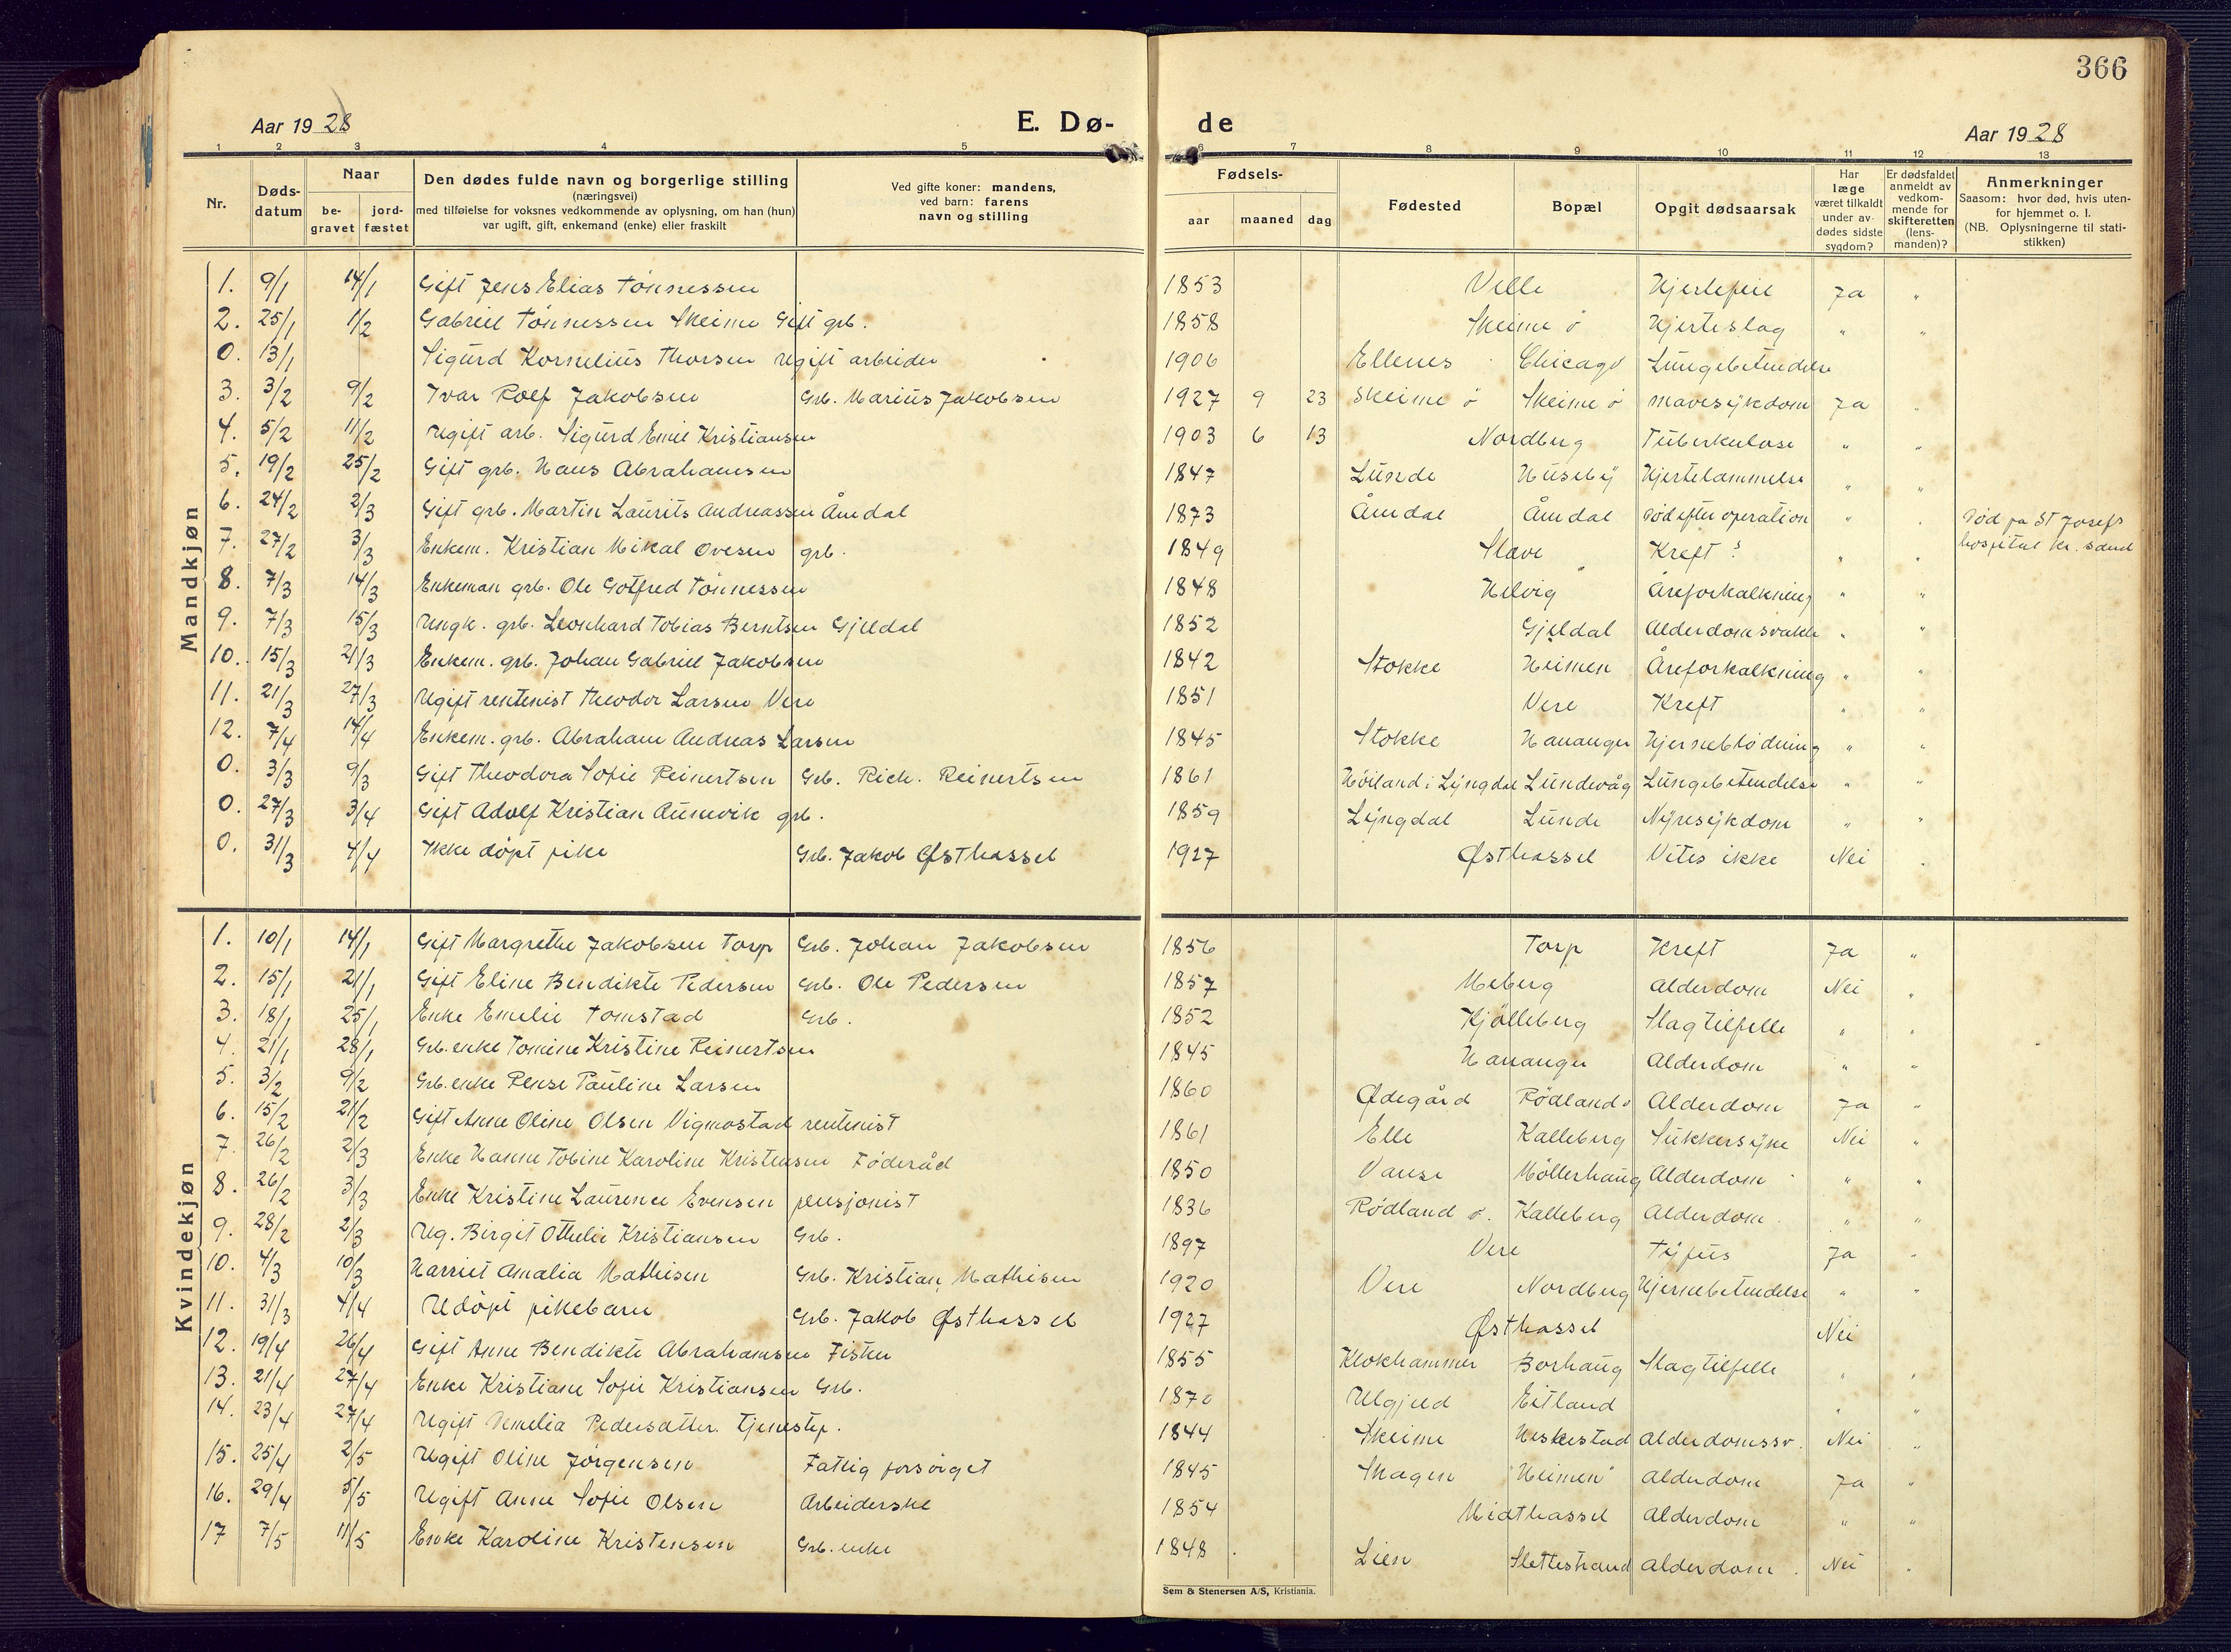 366
Aar 1928 E. Dø- de Aar 1928
1 2 3 4 5 6 7 8 9 10 11 12 13
Nr. Døds-datum Naar be-gravet jord-fæstet Den dødes fulde navn og borgerlige stilling (næringsvei) med tilføielse for voksnes vedkommende av oplysning, om han (hun) var ugift, gift, enkemand (enke) eller fraskilt Ved gifte koner: mandens, ved barn: farens navn og stilling Fødsels- aar maaned dag Fødested Bopæl Opgit dødsaarsak Har læge været tilkaldt under av-dødes sidste sygdom? Er dødsfaldet anmeldt av vedkom-mende for skifteretten (lens-manden)? Anmerkninger Saasom: hvor død, hvis uten-for hjemmet o. l. (NB. Oplysningerne til stati-stikken)
Mandkjøn
1. 9/1 14/1 Gift Jens Elias Tönnessen 1853 Velle Hjertefeil Ja "
2. 25/1 1/2 Gabriel Tönnessen Skeime Gift grb. 1858 Skeime ö Hjerteslag " "
0. 13/1 Sigurd Kornelius Thorsen Ugift arbeider 1906 Ellenes Chicago Lungebetendelse
3. 3/2 9/2 Ivar Rolf Jakobsen Grb. Marius Jakobsen 1927 9 23 Skeime ö Skeime ö Mavesykdom Ja "
4. 5/2 11/2 Ugift arb. Sigurd Emil Kristiansen 1903 6 13 Nordberg Tuberkulose " "
5. 19/2 25/2 Gift grb. Hans Abrahamsen 1847 Lunde Huseby Hjertelammelse " "
6. 24/2 2/3 Gift grb. Martin Laurits Andreassen Åmdal 1873 Åmdal Åmdal Död efter operation " " Död pa St Josefs hospital Kr. sand
7. 27/2 3/3 Enkem. Kristian Mikal Ovesen grb. 1849 Slave Kreft ? " "
8. 7/3 14/3 Enkeman grb. Ole Gotfred Tönnessen 1848 Helvig Åreforkalkning " "
9. 7/3 15/3 Ungk. grb. Leonhard Tobias Berntsen Gjeldal 1852 Gjeldal Alderdomsvakh " "
10. 15/3 21/3 Enkem. grb. Johan Gabriel Jakobsen 1842 Stokke Heimen Åreforkalkning " "
11. 21/3 27/3 Ugift rentenist Theodor Larsen Vere 1851 Vere Kreft " "
12. 7/4 14/4 Enkem. grb. Abraham Andreas Larsen 1845 Stokke Hananger Hjerneblödning " "
0. 3/3 9/3 Gift Theodora Sofie Reinertsen Grb. Rich. Reinertsen 1861 Höiland i Lyngdal Lundevåg Lungebetendelse " "
0. 27/3 3/4 Gift Adolf Kristian Aunevik grb. 1859 Lyngdal Lunde Nyresykdom " "
0. 31/3 4/4 Ikke döpt pike Grb. Jakob Østhassel 1927 Østhassel Vites ikke Nei "
Kvindekjøn
1. 10/1 14/1 Gift Margrethe Jakobsen Torp Grb. Johan Jakobsen 1856 Torp Kreft Ja "
2. 15/1 21/1 Gift Eline Bendikte Pedersen Grb. Ole Pedersen 1857 Meberg Alderdom Nei "
3. 18/1 25/1 Enke Emelie Tomstad Grb. 1852 Kjölleberg Slagtilfelle " "
4. 21/1 28/1 Grb. enke Tomine Kristine Reinertsen 1845 Hananger Alderdom " "
5. 3/2 9/2 Grb. enke Pense Pauline Larsen 1860 Ødegård Rödland ö Alderdom Ja "
6. 15/2 21/2 Gift Anne Oline Olsen Vigmostad rentenist 1861 Elle Kalleberg Sukkersyke Nei "
7. 26/2 2/3 Enke Hanne Tobine Karoline Kristensen Föderåd 1850 Vanse Möllerhaug Alderdom " "
8. 26/2 3/3 Enke Kristine Laurence Evensen pensjonist 1836 Rödland ö. Kalleberg Alderdom " "
9. 28/2 2/3 Ug. Birgit Othelie Kristiansen Grb. 1897 Vere Tyfus Ja "
10. 4/3 10/3 Harriet Amalia Mathisen Grb. Kristian Mathisen 1920 Vere Nordberg Hjernebetendelse " "
11. 31/3 4/4 Udöpt pikebarn Grb. Jakob Østhassel 1927 Østhassel Nei
12. 19/4 26/4 Gift Anne Bendikte Abrahamsen Fisker 1855 Klokhammer Borhaug Slagtilfelle " "
13. 21/4 27/4 Enke Kristiane Sofie Kristiansen Grb. 1870 Ulgjeld Eitland " "
14. 23/4 27/4 Ugift Vemelia Pedersdatter. Tjenestep. 1844 Skeime Heskestad Alderdomssv. Nei "
15. 25/4 2/5 Ugift Oline Jörgensen Fattig forsörget 1845 Skagen "Heimen" Alderdom Ja "
16. 29/4 5/5 Ugift Anne Sofie Olsen Arbeiderske 1854 Midthassel Alderdom " "
17 7/5 11/5 Enke Karoline Kristensen Grb. enke 1848 Lien Slettestrand Alderdom Nei "
Sem & Stenersen A/S, Kristiania.